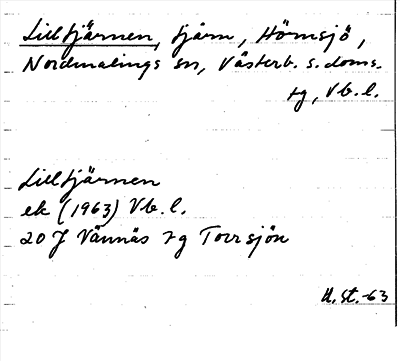 Lilltjärnen, tjärn, Hörnsjö,
Nordmalings sn, Västerb. s. doms.
tg, Vb. l.
Lilltjärnen
ek (1963) Vb. l.
20 J Vännäs 7g Torrsjön
H. St. -63